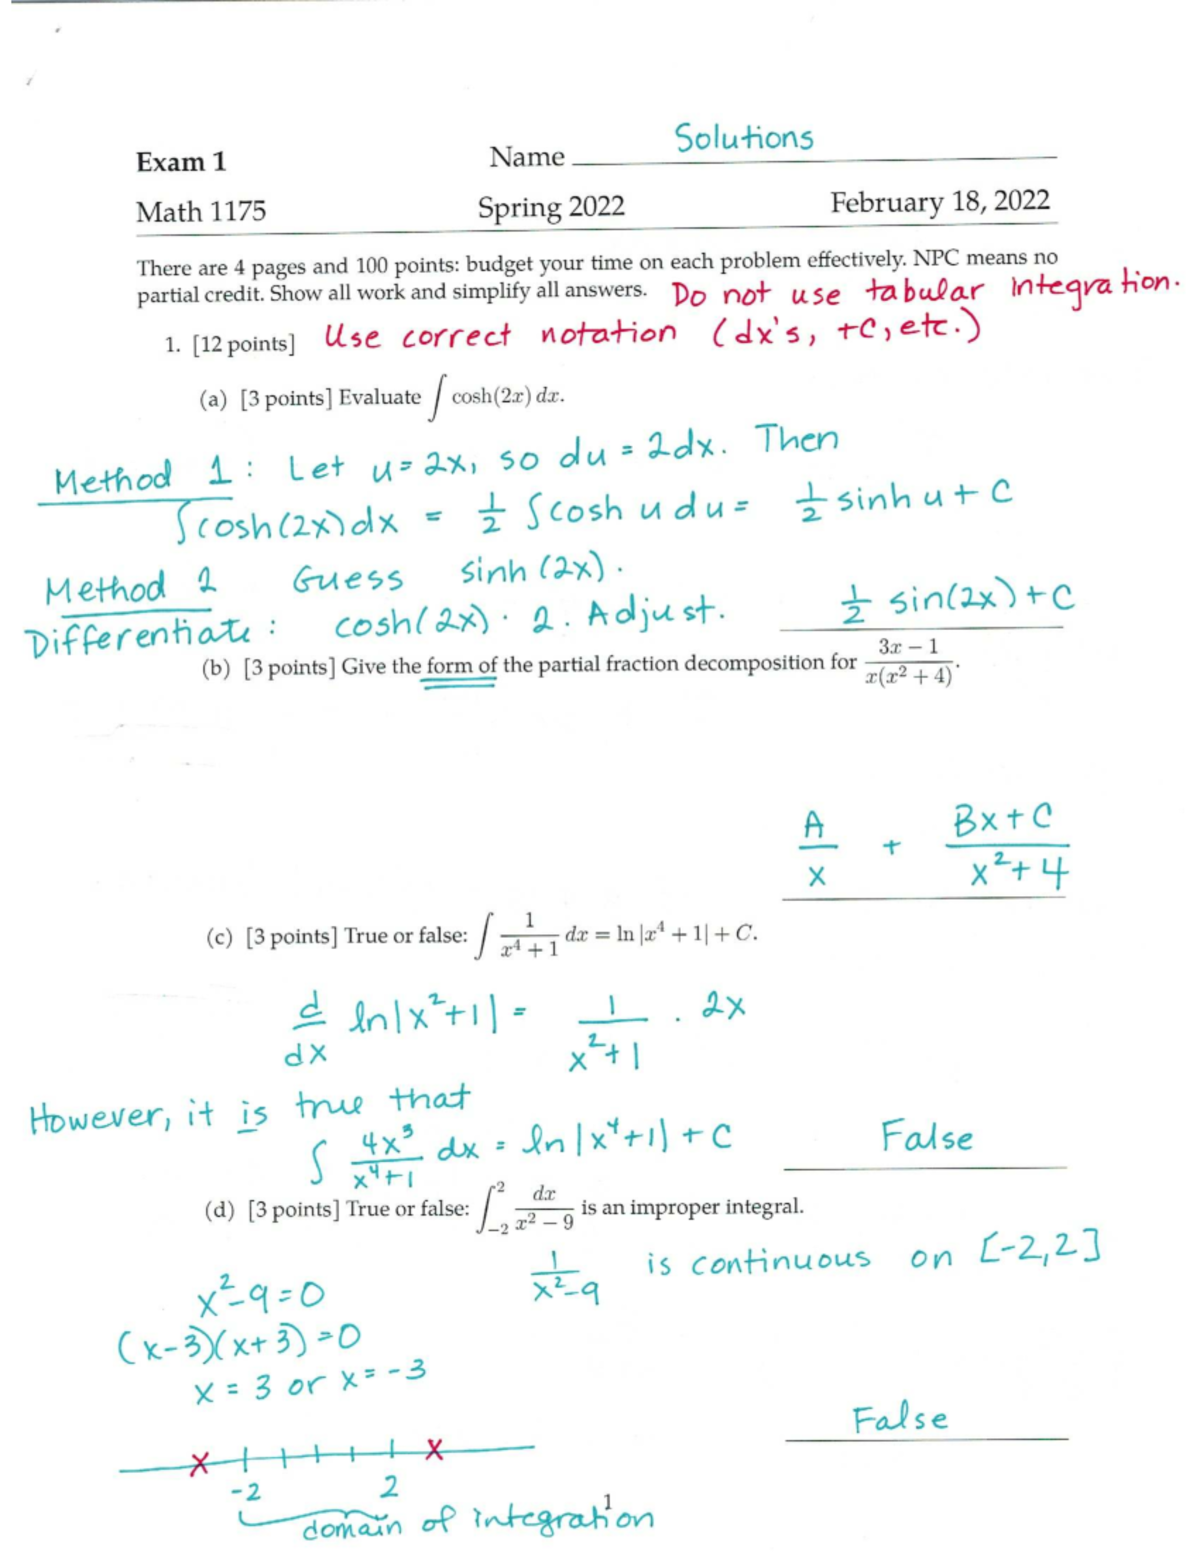 Solutions
Exam 1 Name
Math 1175 Spring 2022 February 18, 2022
There are 4 pages and 100 points: budget your time on each problem effectively. NPC means no
partial credit. Show all work and simplify all answers. Do not use tabular integration.
1. [12 points] Use correct notation (dx's, +C, etc.)
(a) [3 points] Evaluate ∫ cosh(2x) dx.
Method 1: Let u = 2x, so du = 2dx. Then
∫cosh(2x)dx = 1/2 ∫cosh u du = 1/2 sinh u + C
Method 2 Guess sinh (2x).
Differentiate: cosh(2x) · 2. Adjust. 1/2 sin(2x) + C
(b) [3 points] Give the form of the partial fraction decomposition for (3x − 1)/(x(x² + 4)).
A/x + (Bx+C)/(x²+4)
(c) [3 points] True or false: ∫ 1/(x⁴ + 1) dx = ln |x⁴ + 1| + C.
d/dx ln|x²+1| = 1/(x²+1) · 2x
However, it is true that
∫ 4x³/(x⁴+1) dx = ln|x⁴+1| + C False
(d) [3 points] True or false: ∫₋₂² dx/(x² − 9) is an improper integral.
1/(x²-9) is continuous on [-2,2]
x²-9=0
(x-3)(x+3)=0
x = 3 or x = -3
False
x x
-2 2
1
domain of integration